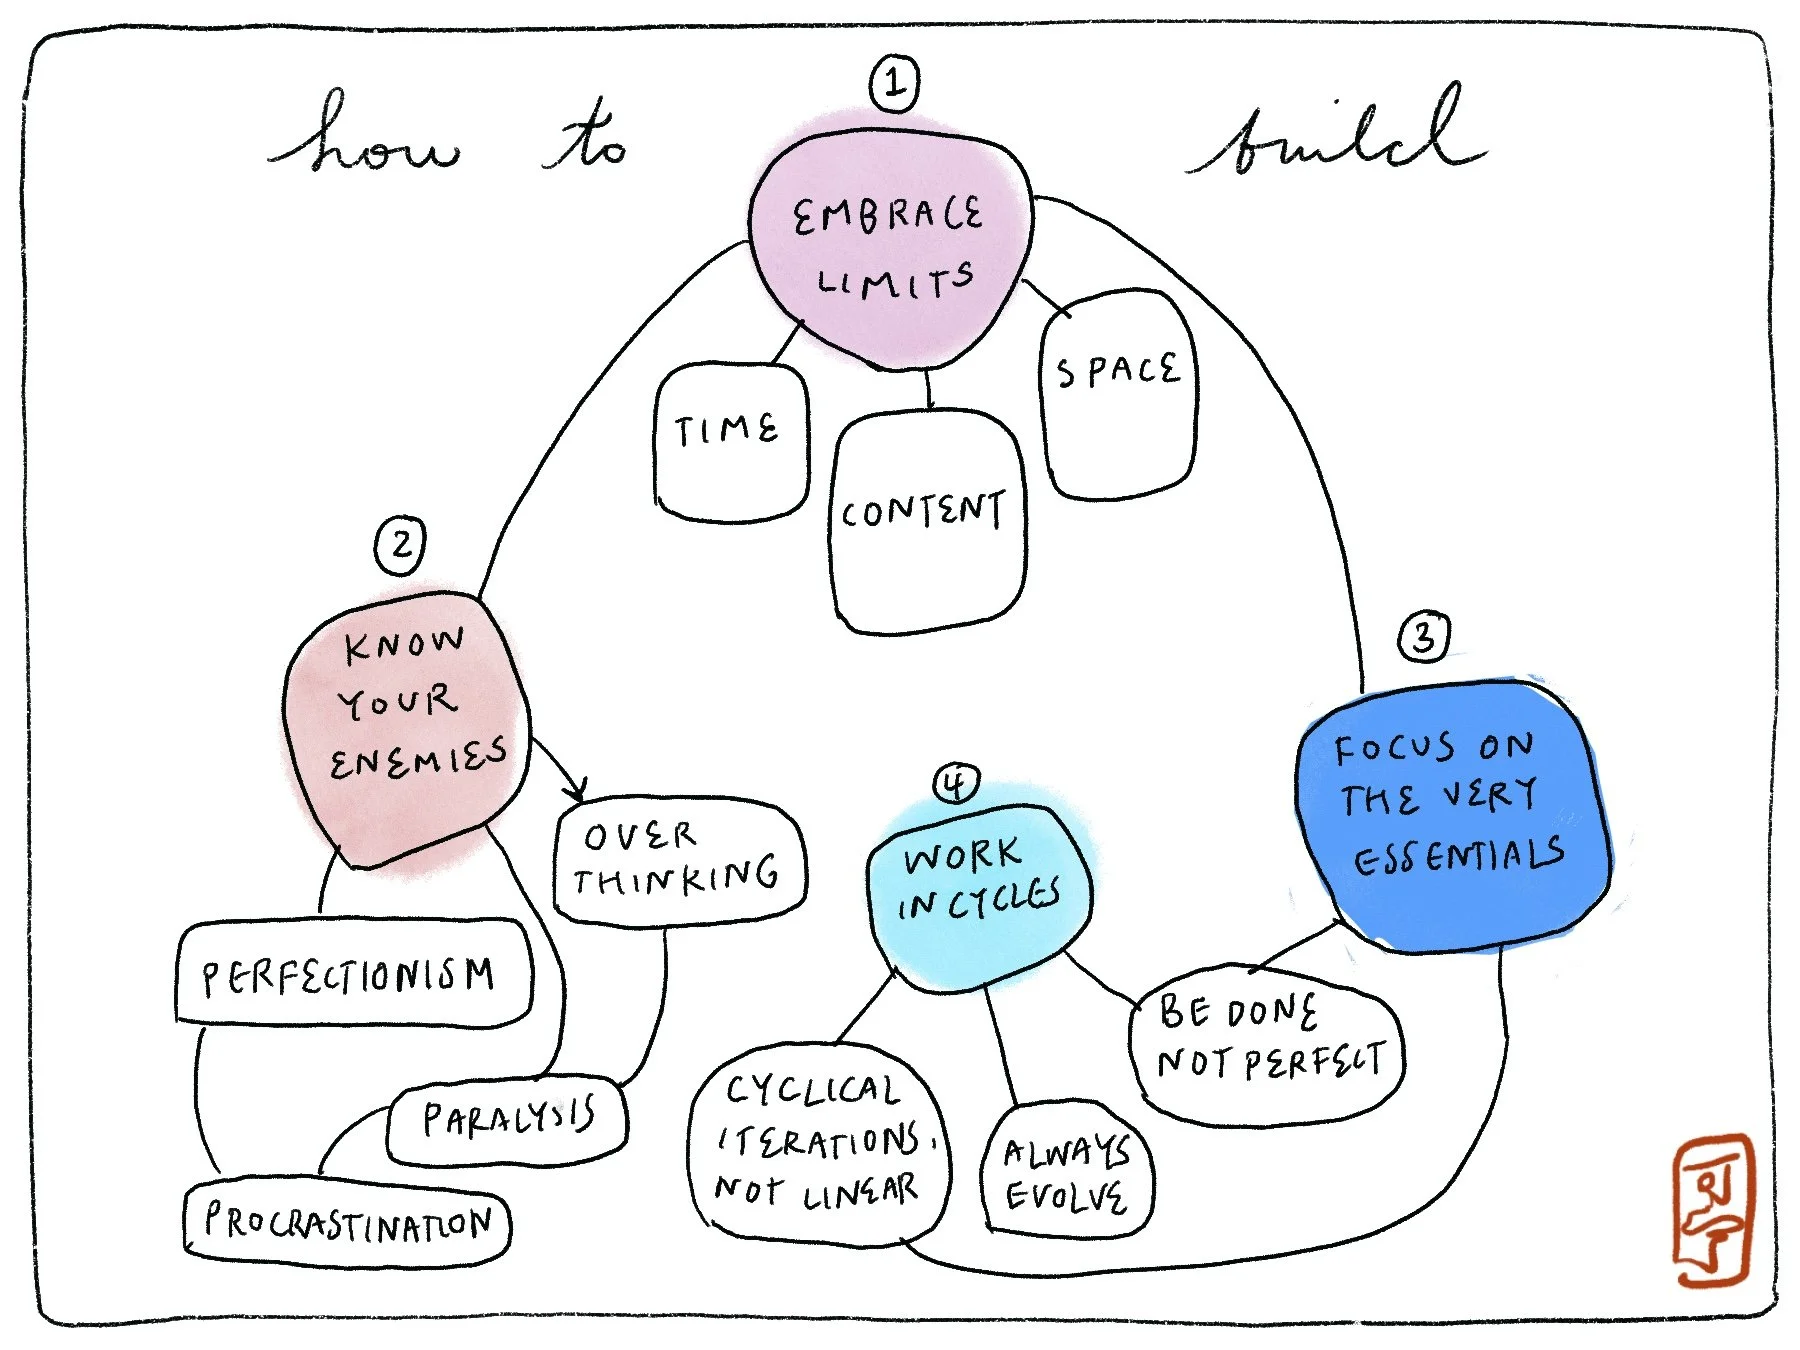 how to build
1
EMBRACE
LIMITS
TIME
CONTENT
SPACE
2
KNOW
YOUR
ENEMIES
OVER
THINKING
PERFECTIONISM
PARALYSIS
PROCRASTINATION
3
FOCUS ON
THE VERY
ESSENTIALS
4
WORK
IN CYCLES
BE DONE
NOT PERFECT
CYCLICAL
ITERATIONS,
NOT LINEAR
ALWAYS
EVOLVE